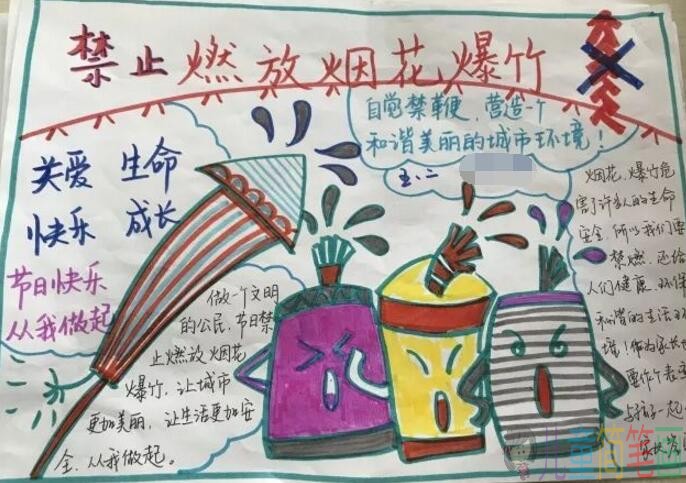 禁止燃放烟花爆竹
自觉禁鞭，营造一个
和谐美丽的城市环境！
五、二
关爱 生命
快乐 成长
节日快乐
从我做起
做一个文明
的公民，节日禁
止燃放烟花
爆竹，让城市
更加美丽，让生活更加安
全，从我做起。
烟花，爆竹危
害了许多人的生命
安全，所以我们要
禁燃，还给
人们健康，环保
和谐的生活环
境！作为家长也
要作个表
与孩子一起
儿童简笔画